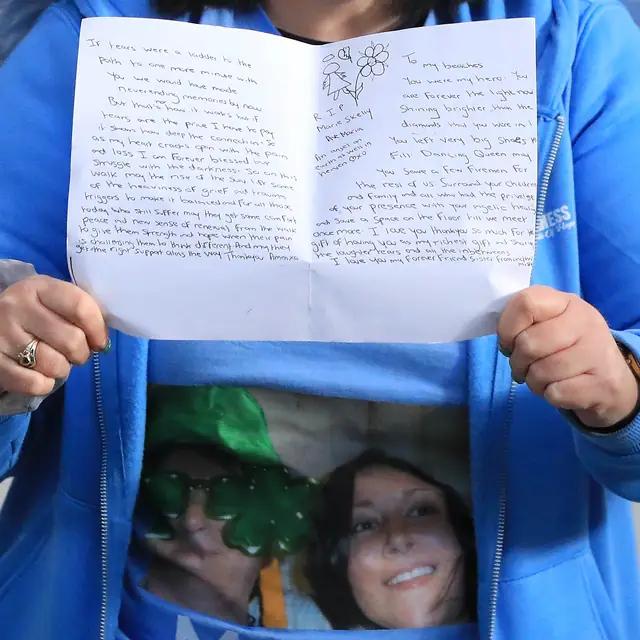 If tears were a ladder to the
path to one more minute with
you we would have made
neverending memories by now
But that's not how it works but if
tears are the price I have to pay
it shows how deep the connection. So
as my heart cracks open with the pain
and loss I am forever blessed
struggle with the darkness. So on this
walk may the rise of the sun lift some
of the heaviness of grief and trauma
triggers to make it balanced for all those
today who still suffer may they get some comfort
peace and new sense of renewal from the walk
to give them strength and hope when their pain
is challenging them to think different. And may they
get the right support along the way. Thankyou
R.I.P
Marie Skelly
An angel on
earth as well as in
heaven oxo
To
my beaches
You were my hero. You
are forever the light now
shining brighter than the
diamonds that you were in
You left very big shoes to
Fill Dancing Queen may
you save a few firemen for
the rest of us. Surround your children
and family and all who had the privilege
of your presence with your angelic touch
and save a space on the floor till we meet
once more. I love you thankyou so much for the
gift of having you as my richest gift and share
the laughter tears and all the inbetweens.
I love you my Forever Friend Sister from another
NESS